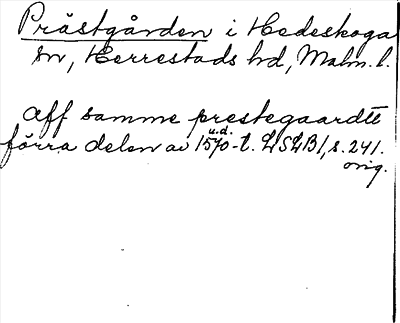 Prästgården i Hedeskoga
sn, Herrestads hd, Malm. l.
aff samme prestegaardtt
u.d.
förra delen av 1570-t. LSLB1, s. 241.
orig.